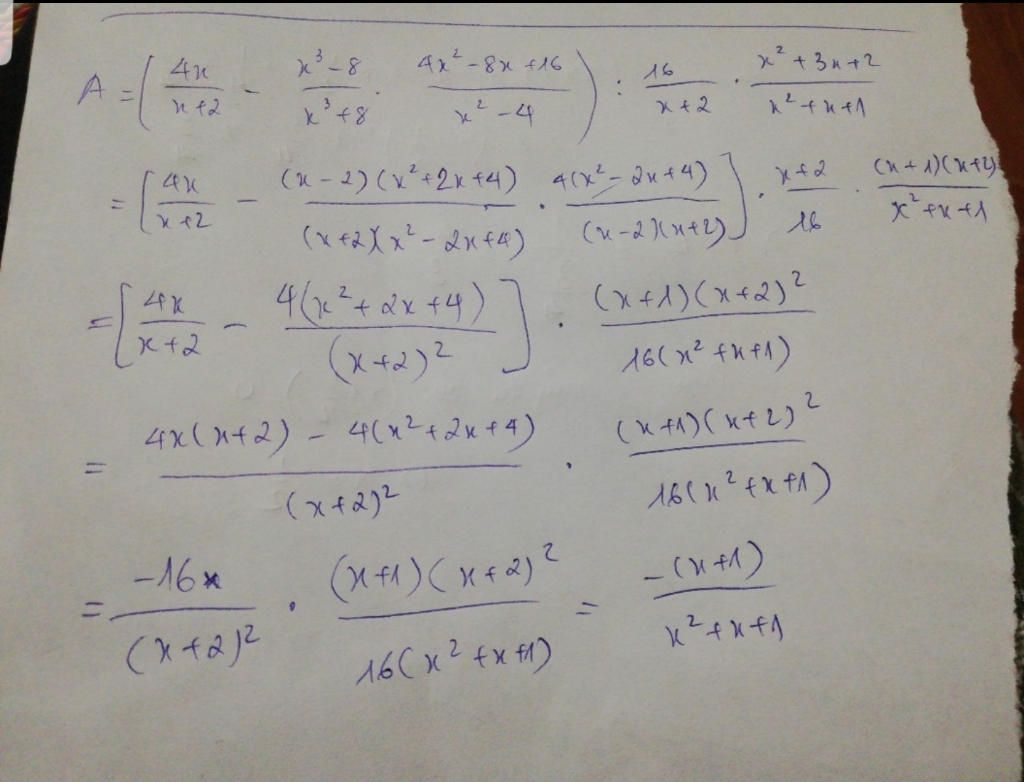 A = ( 4x/(x+2) - (x³-8)/(x³+8) . (4x²-8x+16)/(x²-4) ) : 16/(x+2) . (x²+3x+2)/(x²+x+1)
= [ 4x/(x+2) - (x-2)(x²+2x+4)/(x+2)(x²-2x+4) . 4(x²-2x+4)/(x-2)(x+2) ] . (x+2)/16 . (x+1)(x+2)/(x²+x+1)
= [ 4x/(x+2) - 4(x²+2x+4)/(x+2)² ] . (x+1)(x+2)²/16(x²+x+1)
= (4x(x+2) - 4(x²+2x+4))/(x+2)² . (x+1)(x+2)²/16(x²+x+1)
= -16/(x+2)² . (x+1)(x+2)²/16(x²+x+1) = -(x+1)/(x²+x+1)